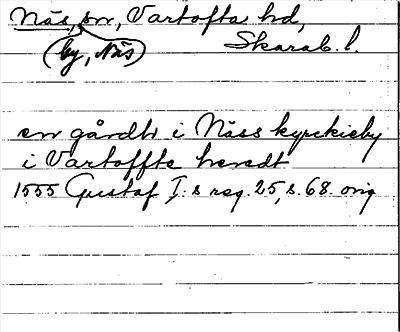 Näs, sn, Vartofta hd,
(by, Näs) Skarab. l.
en gårdh i Näss kyrckieby
i Vartoffte heredt
1555 Gustaf I:s reg. 25, s. 68. orig